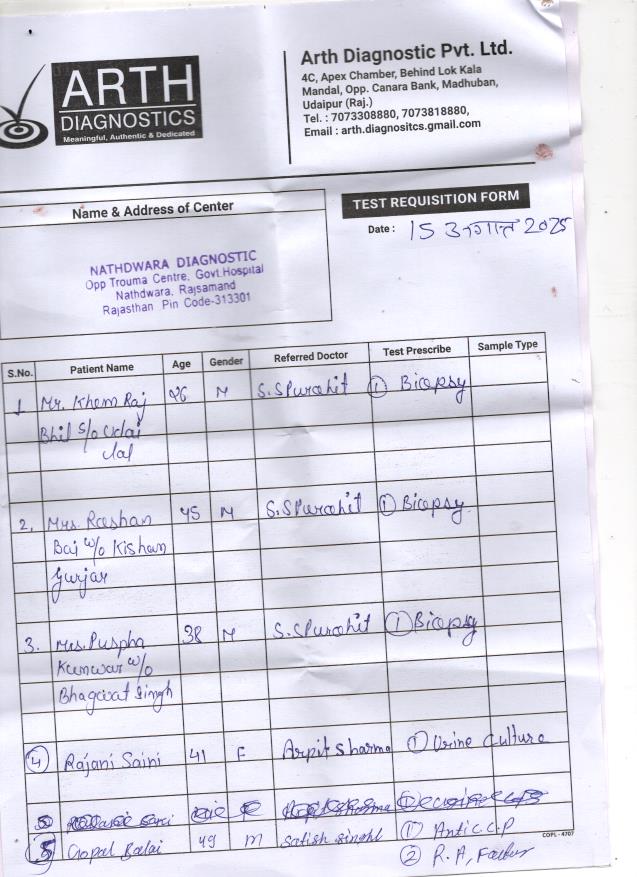 ARTH
DIAGNOSTICS
Meaningful, Authentic & Dedicated
Arth Diagnostic Pvt. Ltd.
4C, Apex Chamber, Behind Lok Kala
Mandal, Opp. Canara Bank, Madhuban,
Udaipur (Raj.)
Tel. : 7073308880, 7073818880,
Email : arth.diagnositcs.gmail.com
TEST REQUISITION FORM
Name & Address of Center
Date : 15 अगस्त 2025
NATHDWARA DIAGNOSTIC
Opp Trouma Centre, Govt.Hospital
Nathdwara, Rajsamand
Rajasthan Pin Code-313301
S.No. Patient Name Age Gender Referred Doctor Test Prescribe Sample Type
1 Mr. Khem Raj 26 M S.S Purohit ① Biopsy
Bhil S/o Udai
Lal
2. Mrs. Roshan 45 M S.S Purohit ① Biopsy
Bai w/o Kishan
Gurjar
3. Mrs. Puspha 38 M S.S Purohit ① Biopsy
Kunwar w/o
Bhagwat Singh
④ Rajani Saini 41 F Arpit Sharma ① Urine Culture
5 Gopal Balai 49 M Satish Singhl ① Anti C.C.P
COPL - 4707
② R.A, Factor